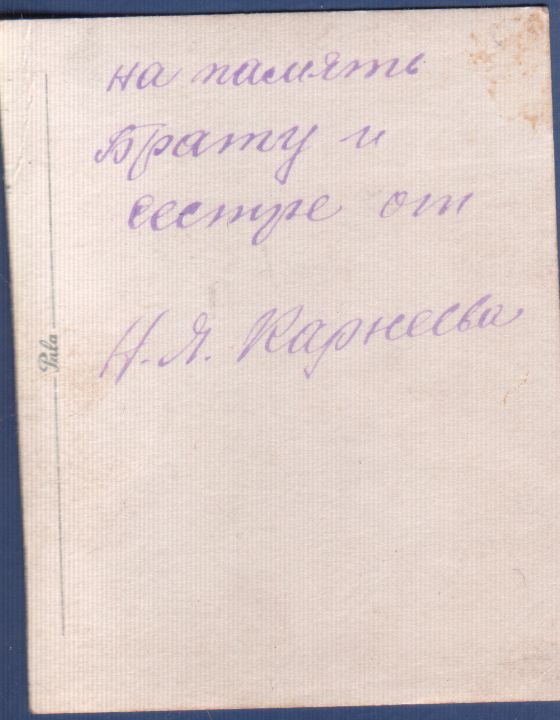 на память
Брату и
сестре от
Н. Я. Карнеева
Pala